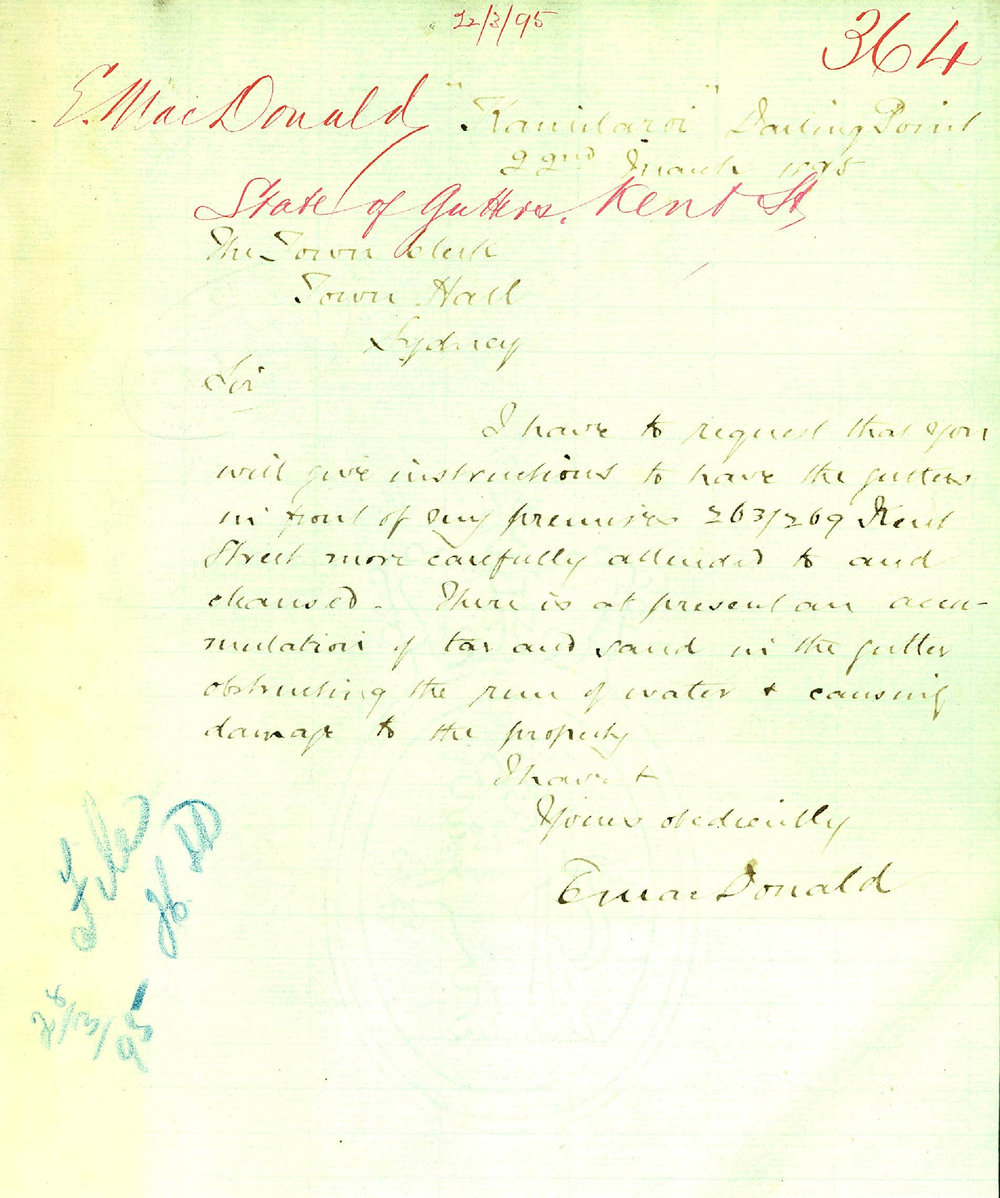 22/3/95
364
E. MacDonald
"Kamilaroi" Darling Point
22nd March 1895
State of Gutters. Kent St
The Town Clerk
Town Hall
Sydney
Sir
I have to request that you
will give instructions to have the gutters
in front of my premises 263/269 Kent
Street more carefully attended to and
cleansed. There is at present an accu-
mulation of tar and sand in the gutter
obstructing the run of water & causing
damage to the property
I have &
Yours obediently
E MacDonald
File
28/3/95